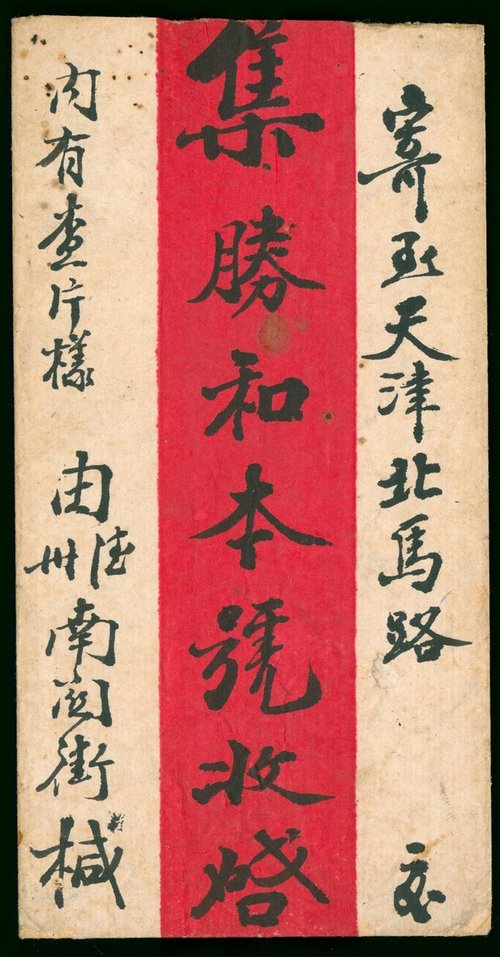 寄至天津北馬路 交
集勝和本號收啓
内有查片樣 由德州南関街椷